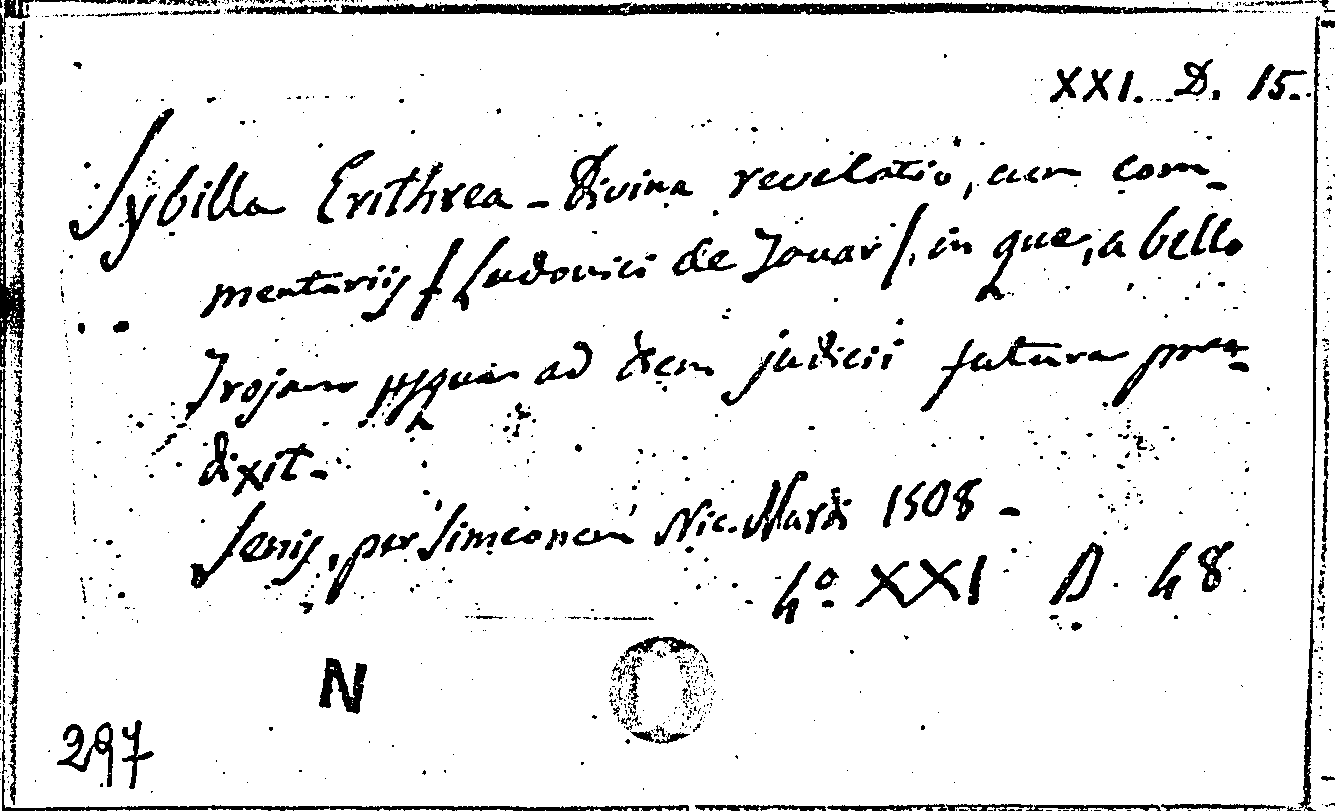 XXI. D. 15.
Sybilla Erithrea - Divina revelatio, cum com-
mentariis [Ludovici de Tovar], in que, a bello
Trojano usque ad diem judicii futura prae-
dixit.
Senis, per Simeonem Nic. Nardi 1508 -
4º XXI D. 48
N
297